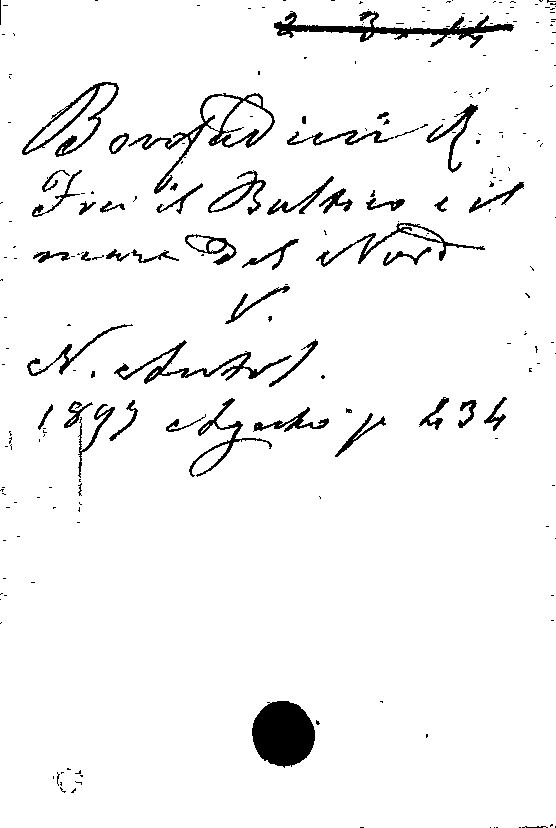 2 3. 14
Bonfadini R.
Fra il Baltico e il
mare del Nord
V.
N. Antol.
1893 Agosto p 434